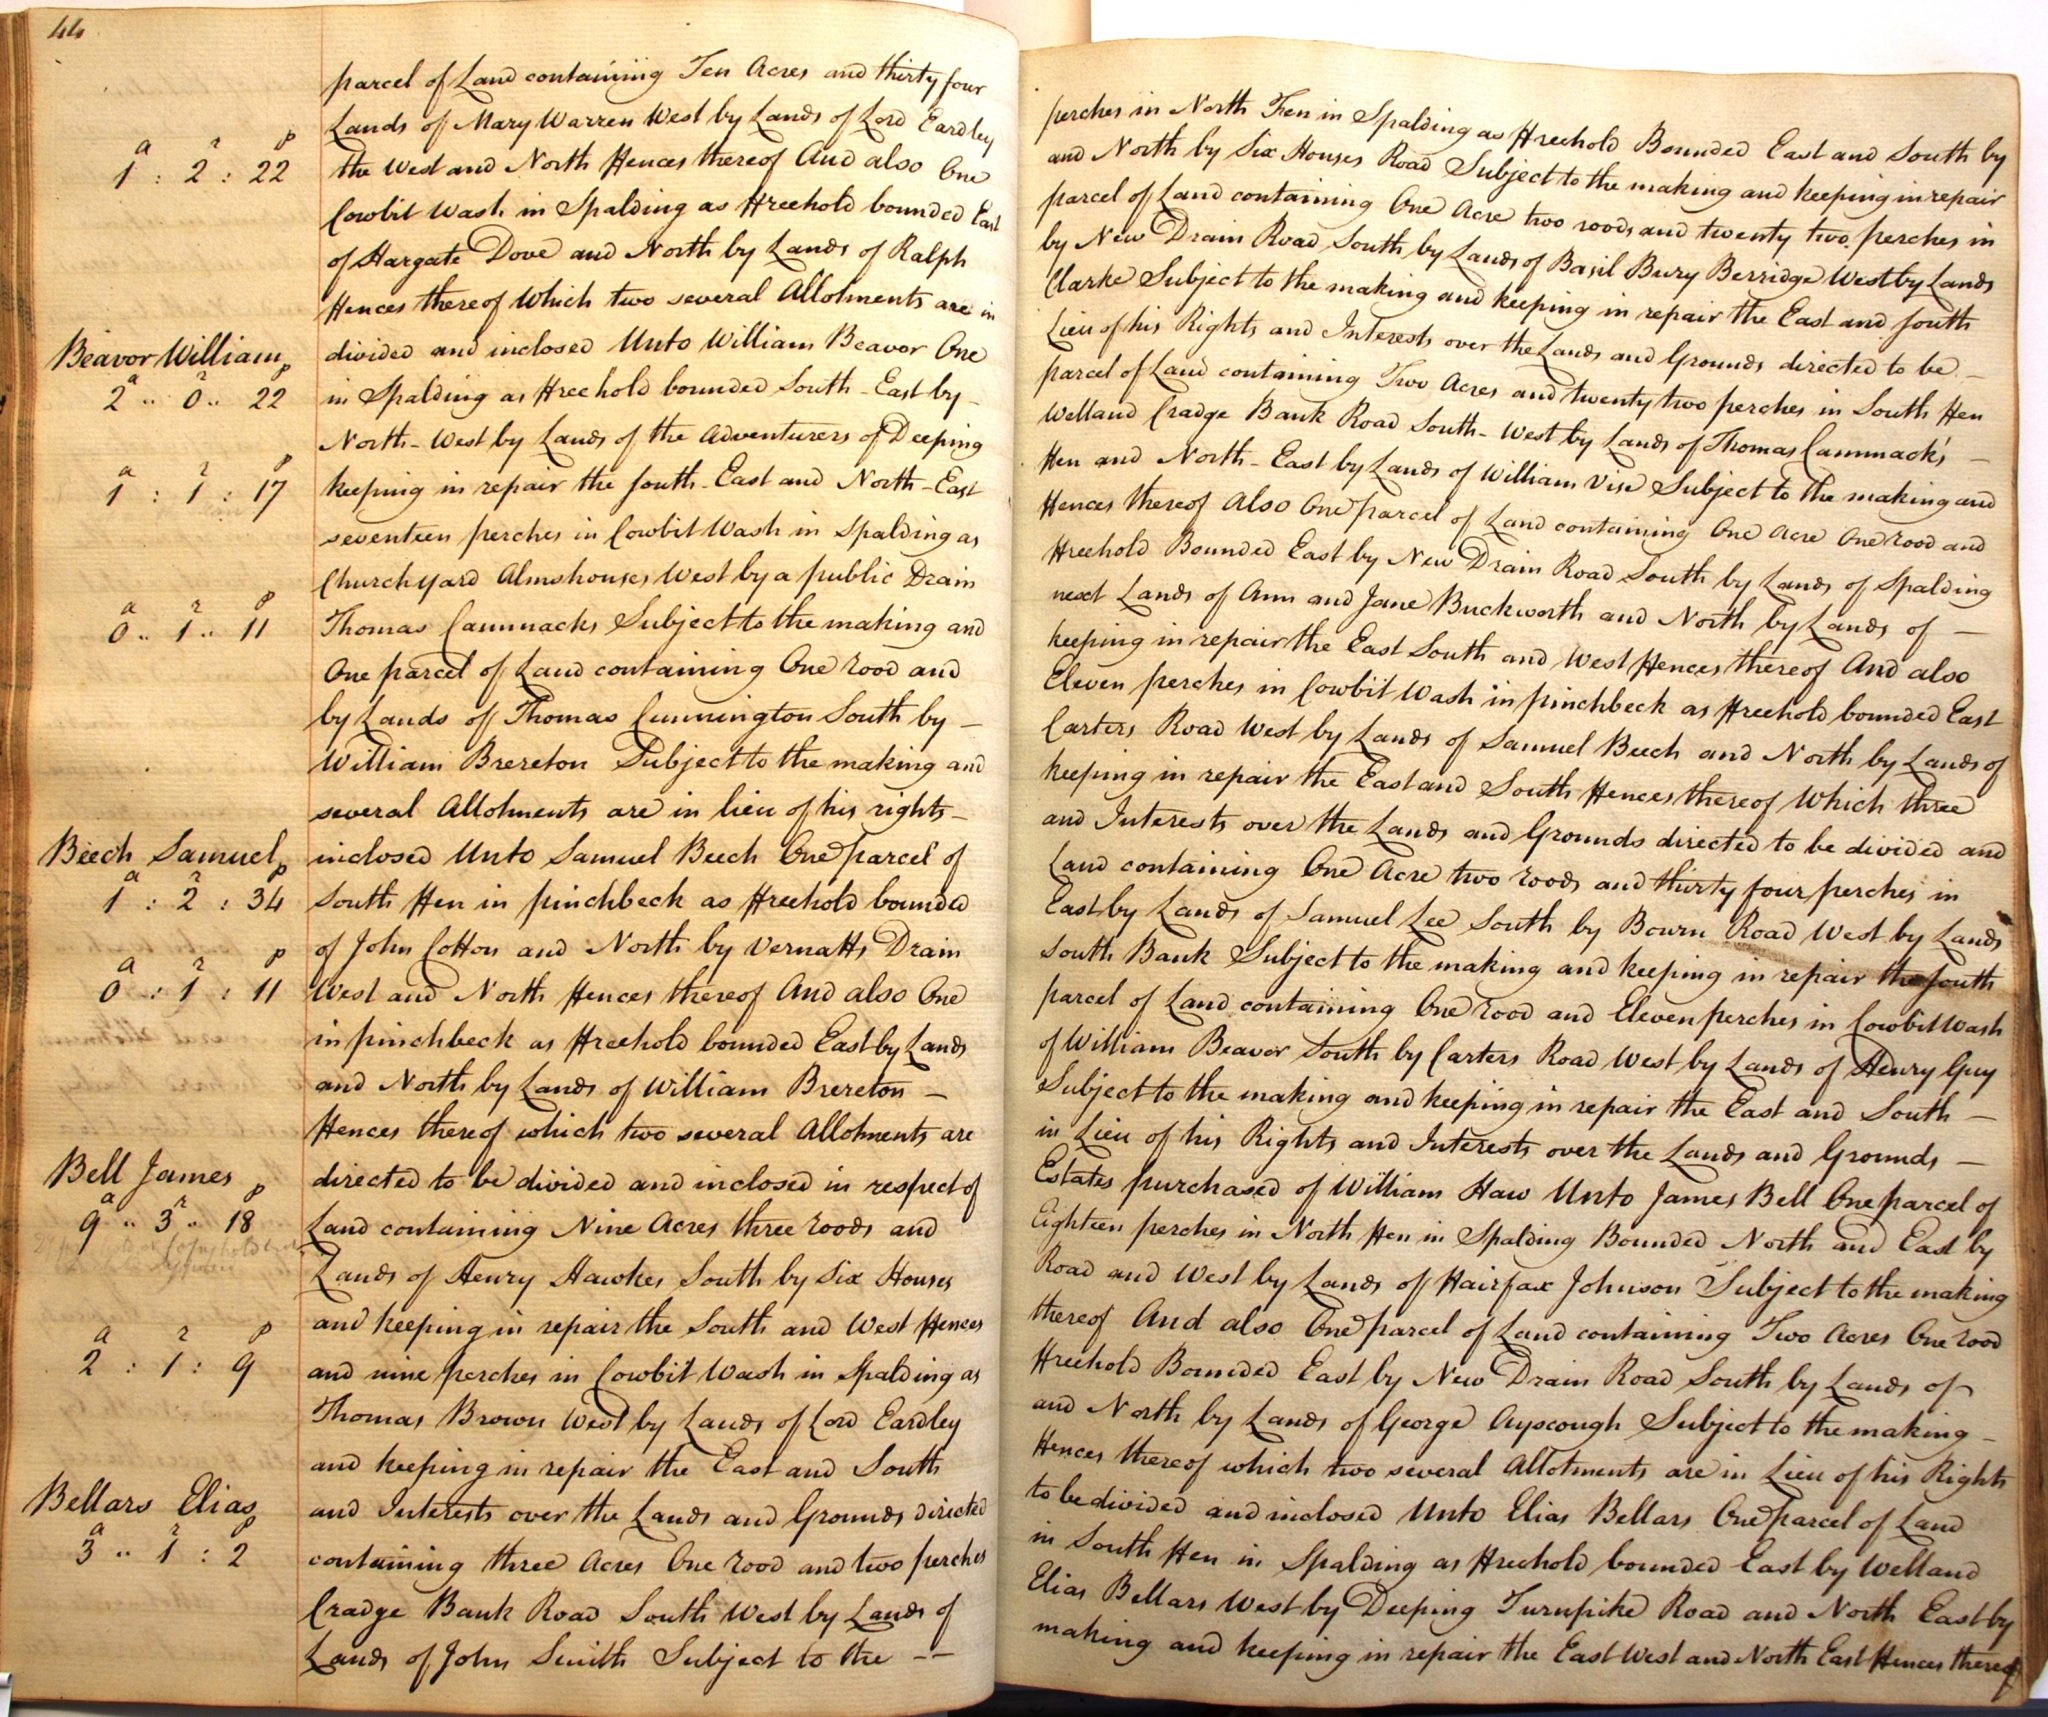 44
parcel of Land containing Ten Acres and thirty four perches in North Fen in Spalding as Freehold Bounded East and South by
Lands of Mary Warren West by Lands of Lord Eardley and North by Six Houses Road Subject to the making and keeping in repair
a r p
1 : 2 : 22 the West and North Fences thereof And also One parcel of Land containing One Acre two roods and twenty two perches in
Cowbit Wash in Spalding as Freehold bounded East by New Drain Road South by Lands of Basil Bury Berridge West by Lands
of Hargate Dove and North by Lands of Ralph Clarke Subject to the making and keeping in repair the East and South
Fences thereof Which two several Allotments are in Lieu of his Rights and Interests over the Lands and Grounds directed to be –
Beavor William divided and inclosed Unto William Beavor One parcel of Land containing Two Acres and twenty two perches in South Fen
a r p
2 .. 0 .. 22 in Spalding as Freehold bounded South - East by – Welland Cradge Bank Road South - West by Lands of Thomas Cammack's –
North - West by Lands of the Adventurers of Deeping Fen and North - East by Lands of William Vise Subject to the making and
a r p
1 : 1 : 17 keeping in repair the South - East and North - East Fences thereof Also One parcel of Land containing One Acre One rood and
seventeen perches in Cowbit Wash in Spalding as Freehold Bounded East by New Drain Road South by Lands of Spalding
Churchyard Almshouses West by a public Drain next Lands of Ann and Jane Buckworth and North by Lands of –
a r p
0 .. 1 .. 11 Thomas Cammacks Subject to the making and keeping in repair the East South and West Fences thereof And also
One parcel of Land containing One rood and Eleven perches in Cowbit Wash in pinchbeck as Freehold bounded East
by Lands of Thomas Cunnington South by – Carters Road West by Lands of Samuel Beech and North by Lands of
William Brereton Subject to the making and keeping in repair the East and South Fences thereof Which three
several Allotments are in lieu of his rights – and Interests over the Lands and Grounds directed to be divided and
Beech Samuel inclosed Unto Samuel Beech One parcel of Land containing One Acre two roods and thirty four perches in
a r p
1 : 2 : 34 South Fen in pinchbeck as Freehold bounded East by Lands of Samuel Lee South by Bourn Road West by Lands
of John Cotton and North by Vernatts Drain South Bank Subject to the making and keeping in repair the South
a r p
0 : 1 : 11 West and North Fences thereof And also One parcel of Land containing One rood and Eleven perches in Cowbit Wash
in pinchbeck as Freehold bounded East by Lands of William Beavor South by Carters Road West by Lands of Henry Guy
and North by Lands of William Brereton – Subject to the making and keeping in repair the East and South –
Fences thereof which two several Allotments are in Lieu of his Rights and Interests over the Lands and Grounds –
Bell James directed to be divided and inclosed in respect of Estates purchased of William Haw Unto James Bell One parcel of
a r p
9 .. 3 .. 18 Land containing Nine Acres three roods and Eighteen perches in North Fen in Spalding Bounded North and East by
Lands of Henry Hawkes South by Six Houses Road and West by Lands of Fairfax Johnson Subject to the making
and keeping in repair the South and West Fences thereof And also One parcel of Land containing Two Acres One rood
a r p
2 : 1 : 9 and nine perches in Cowbit Wash in Spalding as Freehold Bounded East by New Drain Road South by Lands of
Thomas Brown West by Lands of Lord Eardley and North by Lands of George Ayscough Subject to the making –
and keeping in repair the East and South Fences thereof which two several Allotments are in Lieu of his Rights
Bellars Elias and Interests over the Lands and Grounds directed to be divided and inclosed Unto Elias Bellars One parcel of Land
a r p
3 .. 1 : 2 containing three Acres One rood and two perches in South Fen in Spalding as Freehold bounded East by Welland
Cradge Bank Road South West by Lands of Elias Bellars West by Deeping Turnpike Road and North East by
Lands of John Smith Subject to the – – making and keeping in repair the East West and North East Fences thereof